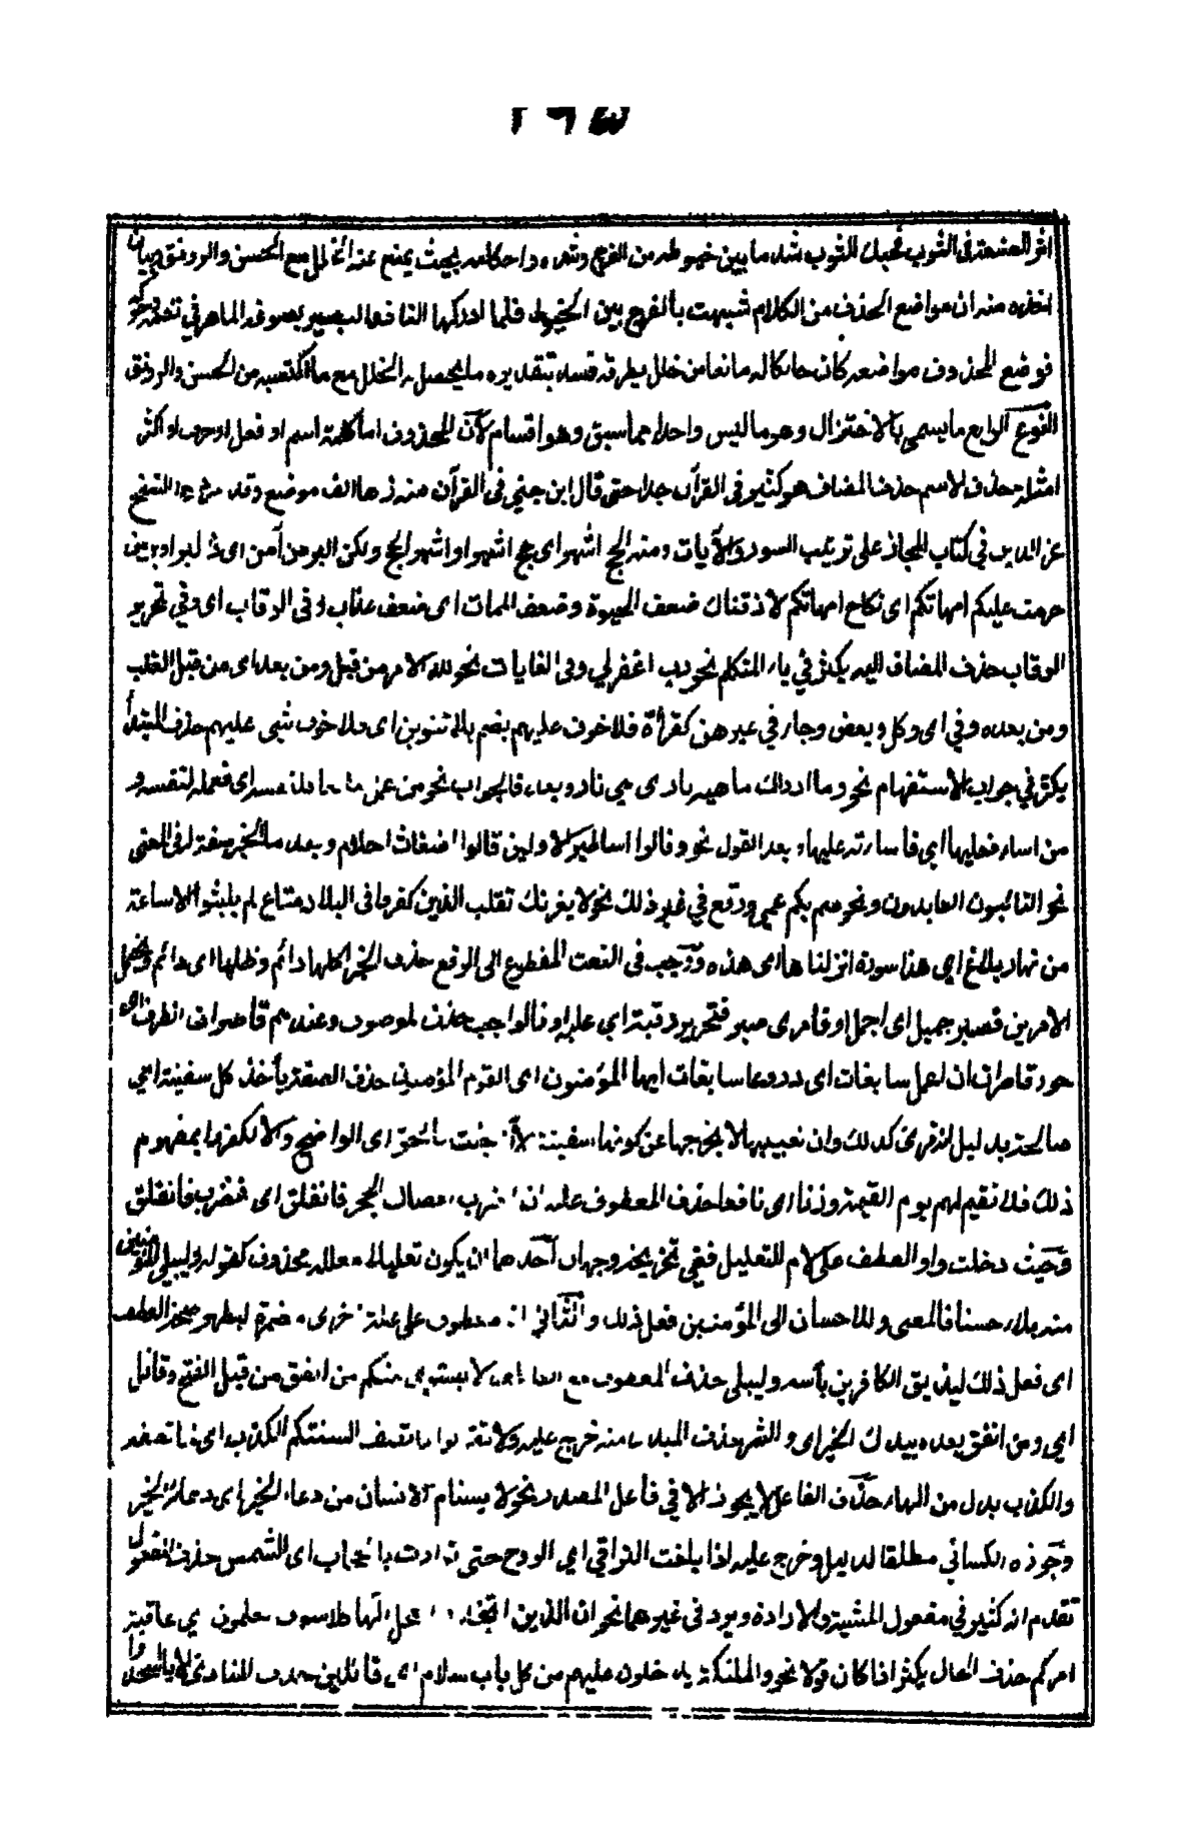 اثر الصنعة في الثوب فحبك الثوب شد ما بين خيوطه من الفرج وشده واحكامه بحيث يمنع عنه الخلل مع الحسن والرونق وبيان
اخذه منه ان مواضع الحذف من الكلام شبهت بالفرج بين الخيوط فلما ادركها الناقد البصير بصوغه الماهر في نظمه وحوكه
فوضع المحذوف مواضعه كان حابكا له مانعا من خلل يطرقه فسد بتقديره ما يحصل به الخلل مع ما اكتسبه من الحسن والرونق
النوع الرابع ما يسمى بالاختزال وهو ما ليس واحدا مما سبق وهو اقسام لان المحذوف اما كلمة اسم او فعل او حرف او اكثر
امثلة حذف الاسم حذف المضاف هو كثير في القرآن جدا حتى قال ابن جني في القرآن منه زها الف موضع وقد الشيخ
عز الدين في كتاب المجاز على ترتيب السور والآيات ومنه الحج اشهر اى حج اشهر او اشهر الحج ولكن البر من آمن اى ذا البر او بر من
حرمت عليكم امهاتكم اى نكاح امهاتكم لاذقناك ضعف الحيوة وضعف الممات اى ضعف عذاب وفى الرقاب اى وفي تحرير
الرقاب حذف المضاف اليه يكثر في ياء المتكلم نحو رب اغفر لي وفى الغايات نحو لله الامر من قبل ومن بعد اى من قبل الغلب
ومن بعده وفي اى وكل وبعض وجاء في غيرهن كقرأة فلا خوف عليهم بضم بلا تنوين اى فلا خوف شيى عليهم حذف المبتدأ
يكثر في جواب الاستفهام نحو وما ادراك ما هيه نار اى هي نار وبعد فا الجواب نحو من عمل صالحا فلنفسه اى فعمله لنفسه و
من اساء فعليها اى فاساءته عليها وبعد القول نحو وقالوا اساطير الاولين قالوا اضغاث احلام وبعد ما الخبر صفة له فى المعنى
نحو التائبون العابدون ونحو صم بكم عمى ووقع في غير ذلك نحو لا يغرنك تقلب الذين كفروا فى البلاد متاع لم يلبثوا الا ساعة
من نهار بلاغ اى هذا سورة انزلناها اى هذه ووجب فى النعت المقطوع الى الرفع حذف الخبر اكلها دائم وظلها اى دائم ويحتمل
الامرين فصبر جميل اى اجمل او فامرى صبر فتحرير رقبة اي عليه او فالواجب حذف الموصوف وعندهم قاصرات الطرف اى
حور قاصرات ان اعمل سابغات اى دروعا سابغات ايها المؤمنون اى القوم المؤمنون حذف الصفة يأخذ كل سفينة اى
صالحة بدليل انه قرئ كذلك وان تعييبها لا يخرجها عن كونها سفينة الآن جئت بالحق اى الواضح والا لكفروا بمفهوم
ذلك فلا نقيم لهم يوم القيمة وزنا اى نافعا حذف المعطوف عليه ان اضرب بعصاك البحر فانفلق اى فضرب فانفلق
وحيث دخلت واو العطف على لام التعليل ففي تخريجه وجهان أحدهما ان يكون تعليلا معلله محذوف كقوله وليبلي المؤمنين
منه بلاء حسنا فالمعنى وللاحسان الى المؤمنين فعل ذلك والثاني انه معطوف على علة اخرى مضمرة ليظهر صحة العطف
اى فعل ذلك ليذيق الكافرين بأسه وليبلى حذف المعطوف مع العاطف لا يستوى منكم من انفق من قبل الفتح وقاتل
اى ومن انفق بعده بيدك الخير اى والشر حذف المبدل منه خرج عليه ولا تقولوا لما تصف السنتكم الكذب اى لما تصفه
والكذب بدل من الهاء حذف الفاعل لا يجوز الا في فاعل المصدر نحو لا يسئم الانسان من دعاء الخير اى دعائه الخير
وجوزه الكسائي مطلقا لدليل وخرج عليه اذا بلغت التراقي اى الروح حتى توارت بالحجاب اى الشمس حذف المفعول
تقدم انه كثير في مفعول المشية والارادة ويرد في غيرهما نحو ان الذين اتخذوا العجل الها كلا سوف تعلمون اى عاقبة
امركم حذف الحال يكثر اذا كان قولا نحو والملئكة يدخلون عليهم من كل باب سلام اى قائلين حذف المنادى الا يا اسجدوا